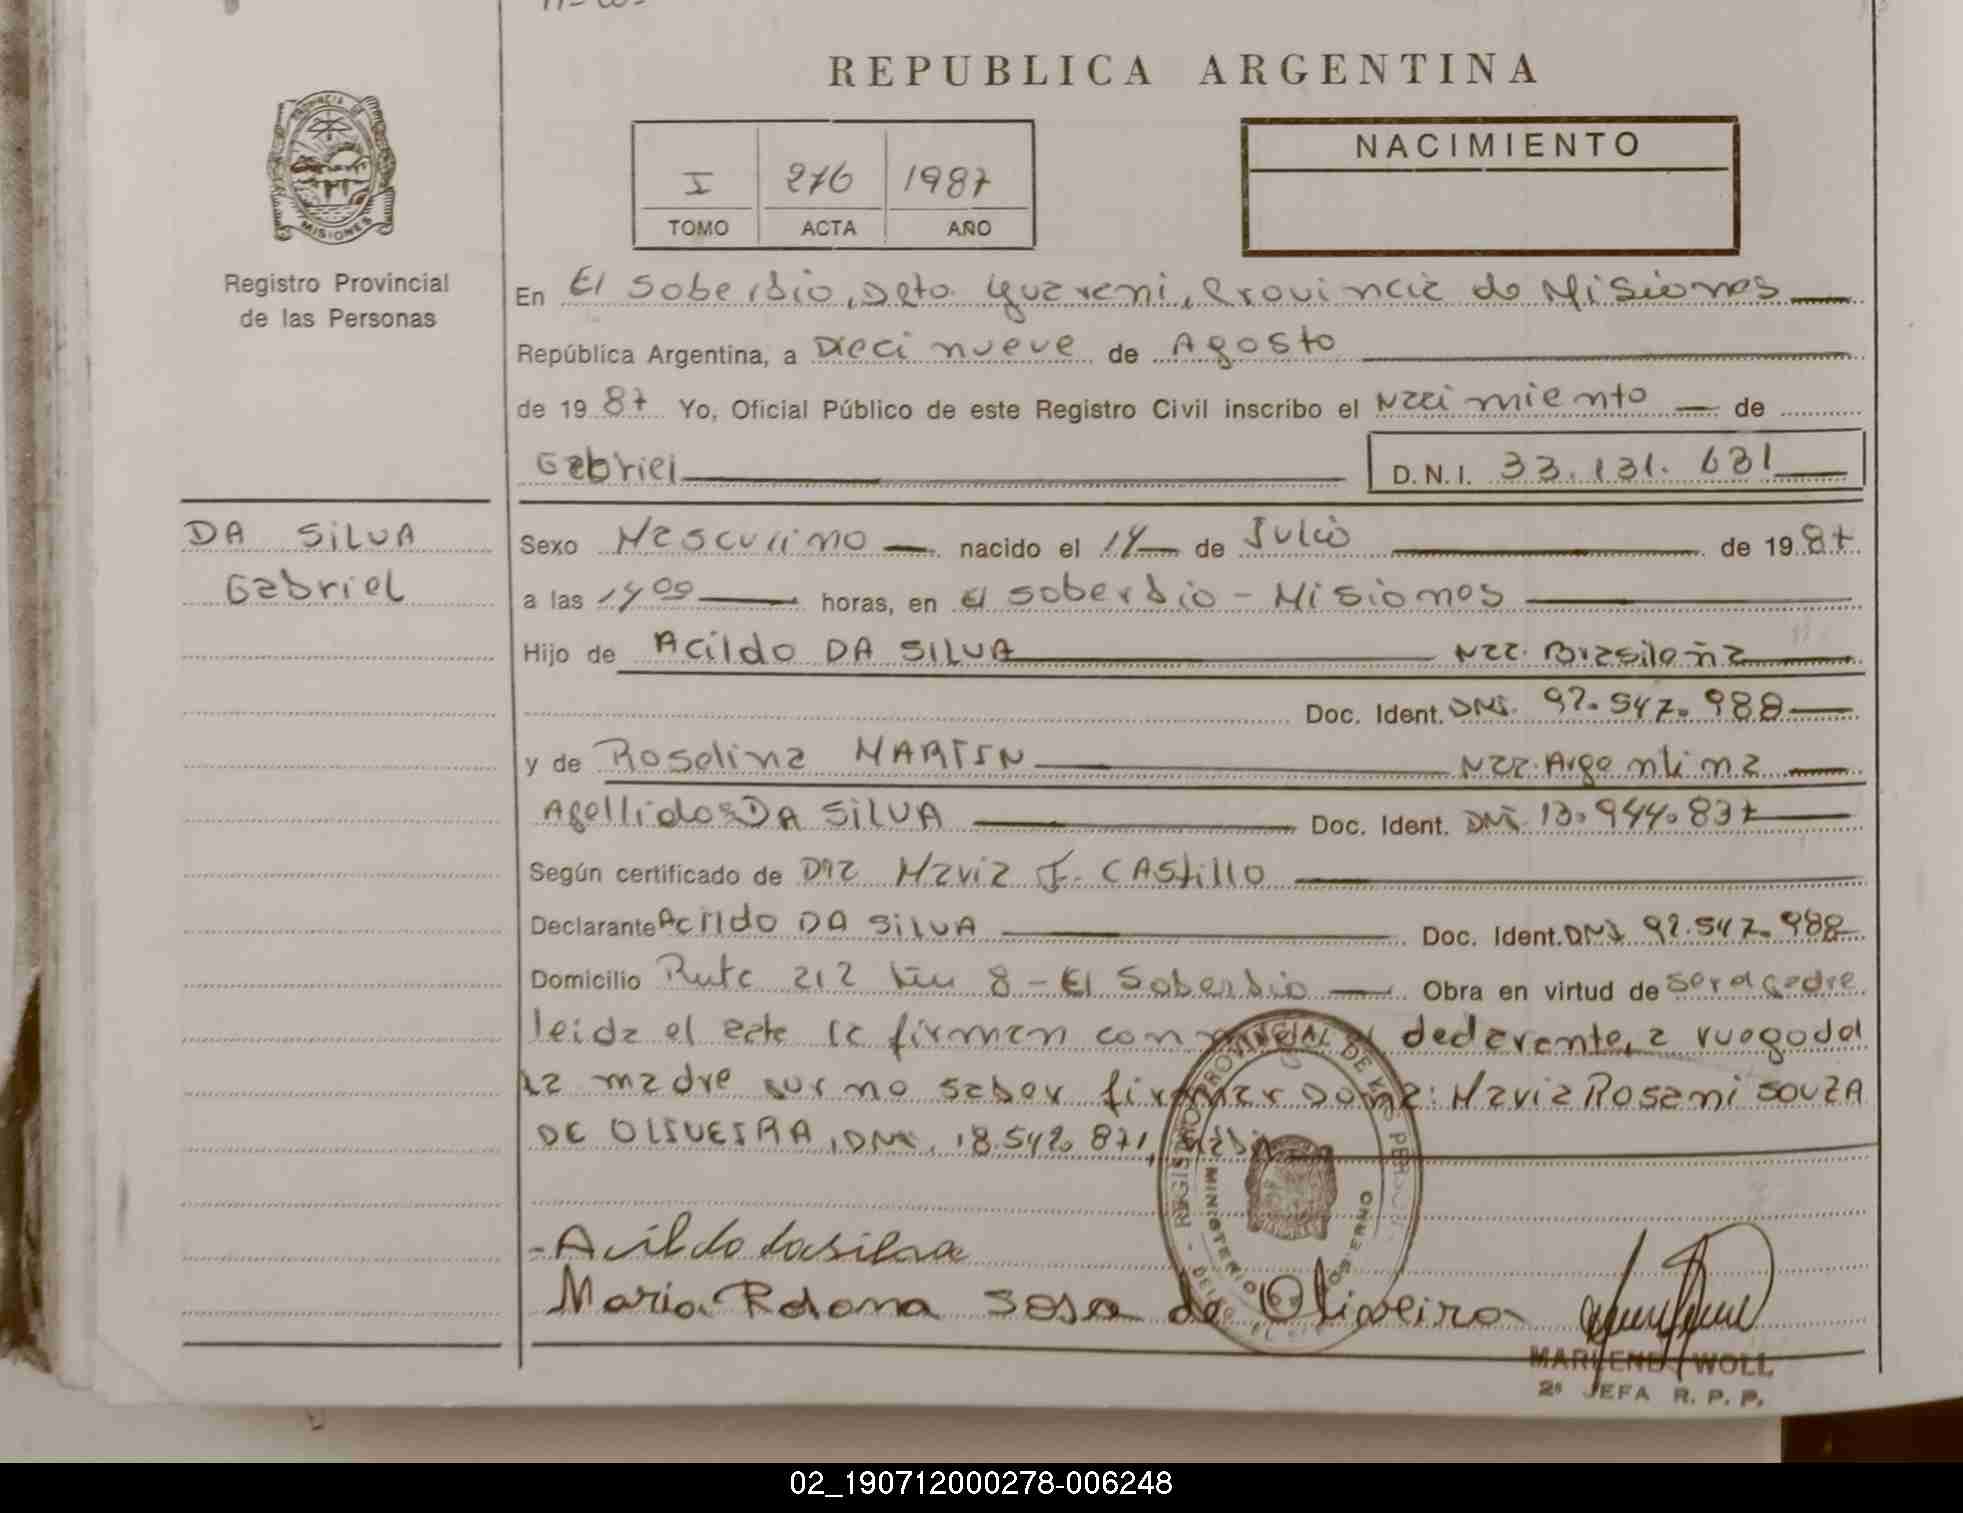 REPUBLICA ARGENTINA
PROVINCIA DE MISIONES
Registro Provincial
de las Personas
I 276 1987
TOMO ACTA AÑO
NACIMIENTO
En El Soberbio, Dpto. Guarani, Provincia de Misiones
República Argentina, a Dieci nueve de Agosto
de 1987 Yo, Oficial Público de este Registro Civil inscribo el Nacimiento de
Gabriel D.N.I. 33.131.631
DA SILVA
Gabriel
Sexo Masculino nacido el 14 de Julio de 1987
a las 14 00 horas, en El Soberbio - Misiones
Hijo de Acildo DA SILVA Nac. Brasileña
Doc. Ident. DNI. 92.547.988
y de Roselina MARTIN Nac. Argentina
Apellidos DA SILVA Doc. Ident. DNI. 13.944.837
Según certificado de Dra Maria J. CAStillo
Declarante Acildo DA SILVA Doc. Ident. DNI 92.547.988
Domicilio Ruta 212 km 8 - El Soberbio Obra en virtud de ser el padre
leida el acta la firman con declarante, a ruego de
la madre por no saber firmar Doña: Maria Rosani SOUZA
DE OLIVEIRA, DNI. 18.542.871,
REGISTRO PROVINCIAL DE LAS PERSONAS
MINISTERIO GOBIERNO
- Acildo dasilva
Maria Rosana Sosa de Oliveira
MARLENE WOLL
2ª JEFA R. P. P.
02_190712000278-006248